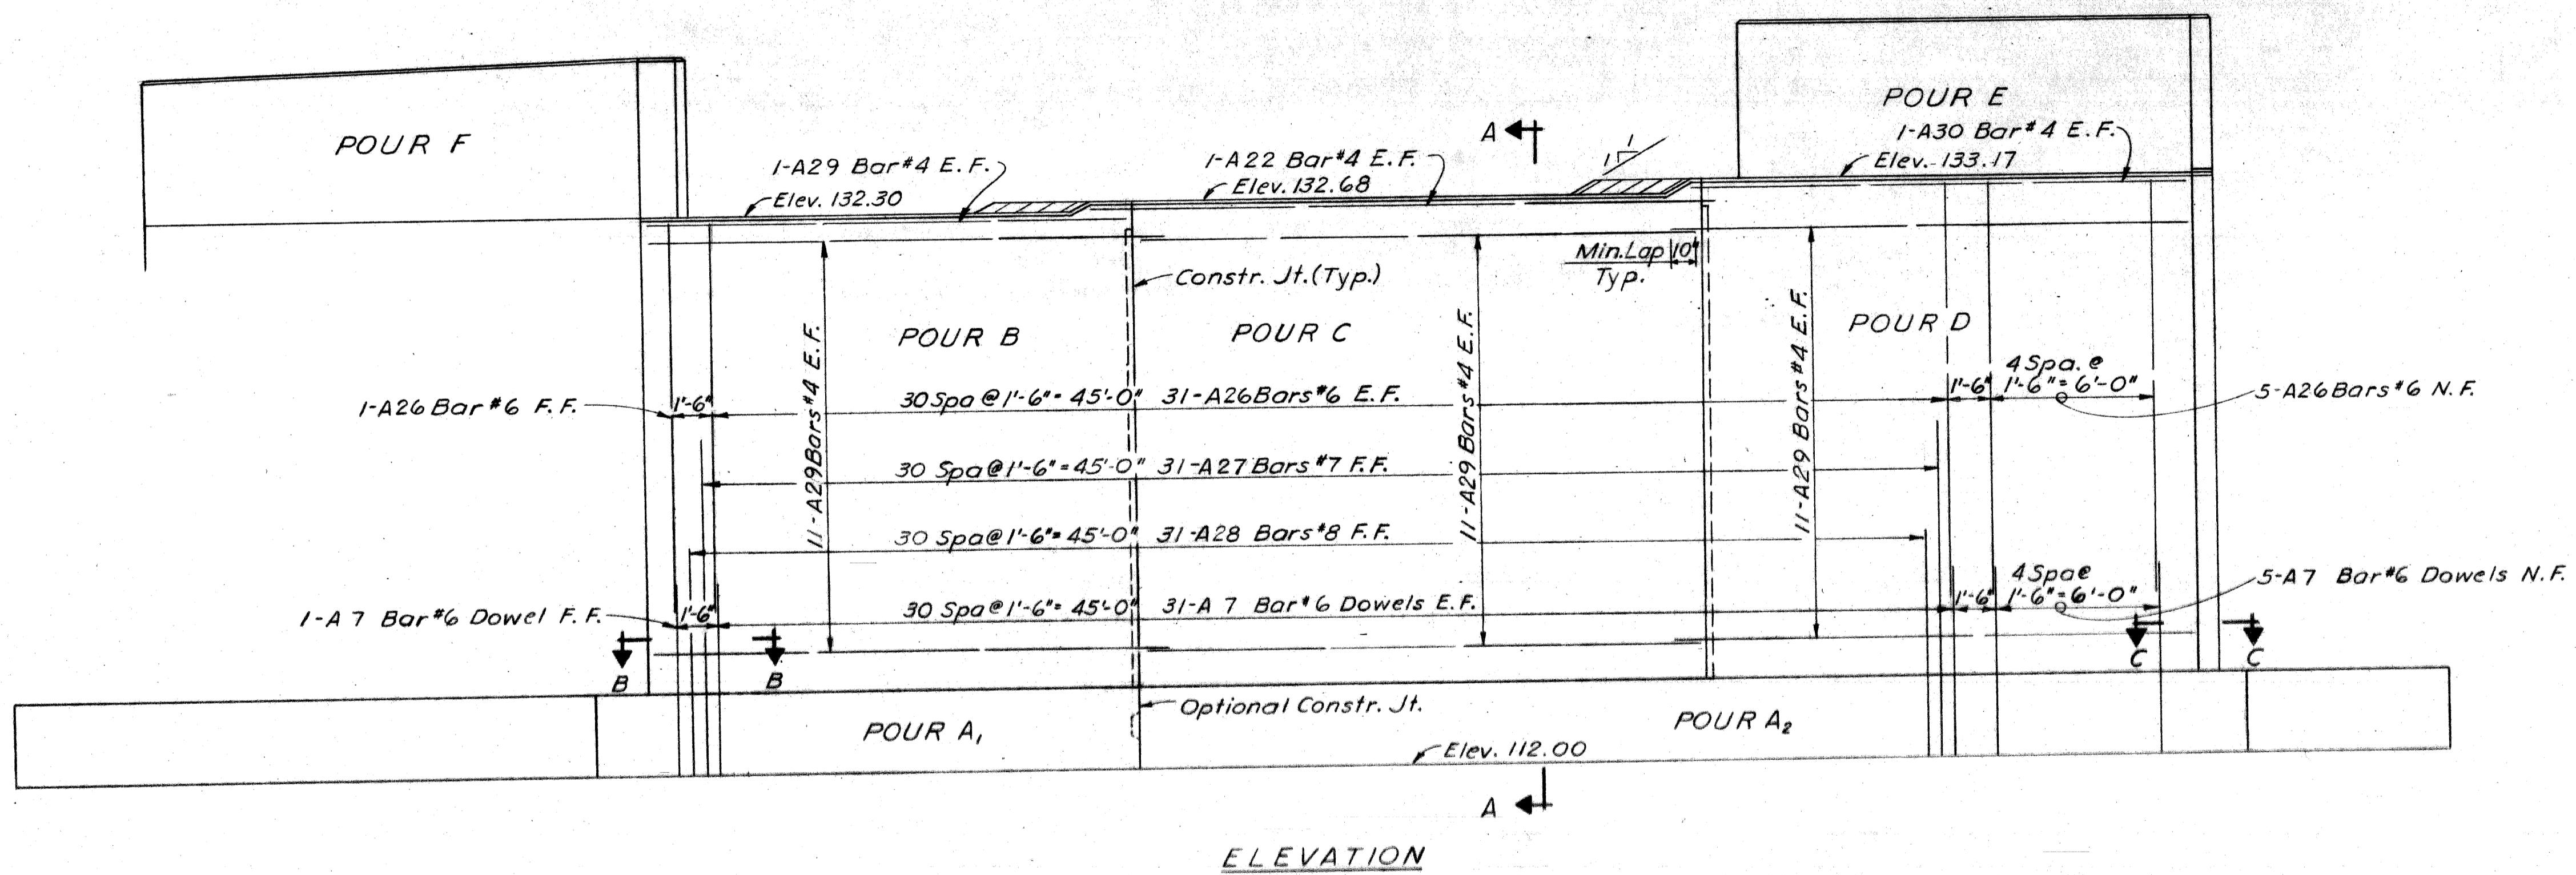 POUR F
POUR E
1-A30 Bar #4 E.F.
Elev. 133.17
A
1-A29 Bar #4 E.F.
Elev. 132.30
1-A22 Bar #4 E.F.
Elev. 132.68
1
1
Min. Lap 10"
Typ.
Constr. Jt. (Typ.)
POUR B
POUR C
POUR D
11-A29 Bars #4 E.F.
11-A29 Bars #4 E.F.
11-A29 Bars #4 E.F.
1-A26 Bar #6 F.F.
1'-6"
30 Spa @ 1'-6" = 45'-0" 31-A26 Bars #6 E.F.
1'-6"
4 Spa. @
1'-6" = 6'-0"
5-A26 Bars #6 N.F.
30 Spa @ 1'-6" = 45'-0" 31-A27 Bars #7 F.F.
30 Spa @ 1'-6" = 45'-0" 31-A28 Bars #8 F.F.
1-A7 Bar #6 Dowel F.F.
1'-6"
30 Spa @ 1'-6" = 45'-0" 31-A7 Bar #6 Dowels E.F.
1'-6"
4 Spa @
1'-6" = 6'-0"
5-A7 Bar #6 Dowels N.F.
B
B
C
C
Optional Constr. Jt.
POUR A1
POUR A2
Elev. 112.00
A
ELEVATION